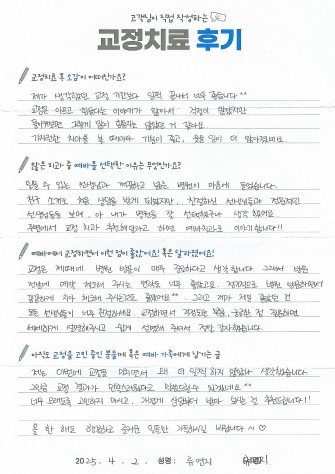 고객님이 직접 작성하는
교정치료 후기
교정치료 후 소감이 어떠한가요?
제가 생각했던 교정 기간보다 일찍 끝나서 너무 좋습니다^^
교정은 아프고 힘들다는 이야기가 많아서 걱정이 많았지만
돌이켜보면 그렇게 많이 힘들지는 않았던 거 같아요.
가지런한 치아를 볼 때마다 기분이 좋고, 웃는 일이 더 많아졌네요.
많은 치과 중 예바를 선택한 이유는 무엇인가요?
믿을 수 있는 선생님과 깨끗하고 넓은 병원이 마음에 들었습니다.
친구 소개로 처음 상담을 받게 되었지만, 친절하신 선생님들과 전문적인
선생님들을 보며, 아 내가 병원을 잘 선택했구나 생각 했어요.
주변에서 교정 치과 추천해달라고 하면 예바치과로 이야기합니다!!
예바에서 교정하면서 이런 점이 좋았어요! 혹은 달라졌어요!
교정은 제때에 병원 방문이 매우 중요하다고 생각합니다. 그래서 방문
전날에 예약 체크해 주시는 연락도 너무 좋았고요. 정기적으로 병원 방문하면서
꼼꼼하게 치아 체크해 주신것도 좋았어요^^ 그리고 제가 처음 옮았던 건
모든 선생님들이 너무 친절하세요. 교정하면서 걱정되는 부분, 궁금한 점 질문하면
세세하게 설명해주시고 쉽게 설명해 주셔서 정말 감사했습니다.
아직도 교정을 고민 중인 분들께 혹은 예바 가족에게 남기는 글
저는 이번에 교정을 마치면서 왜 더 일찍 하지 않았나 생각했습니다.
그만큼 교정 결과가 만족스러웠다고 말씀드릴수 있겠네요^^
너무 오래도록 고민하지 마시고, 가볍게 상담부터 받아 보시는 걸 추천드립니다!
올 한 해도 행복하고 즐거운 일들만 가득하시길 바랍니다~♡
2025. 4. 2. 성명 : 류연지 류연지